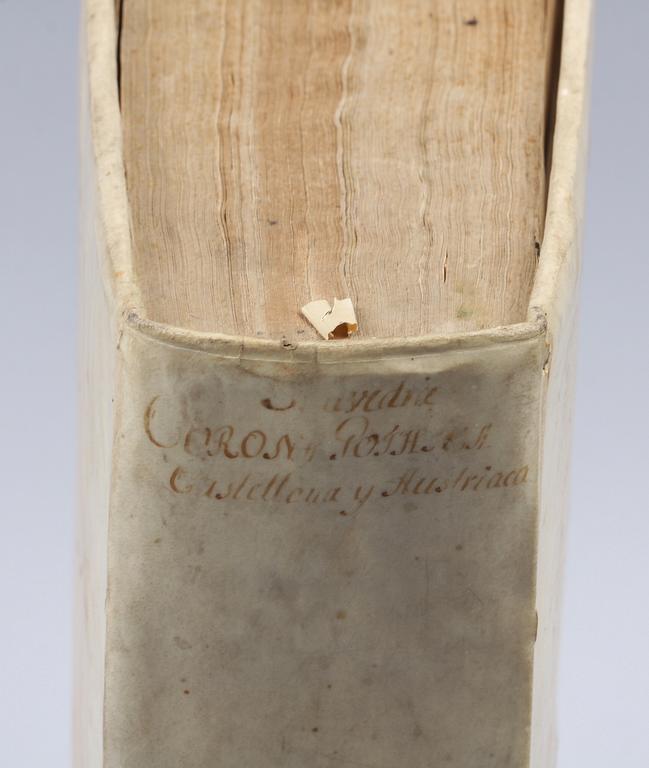 Saavedra
CORONA GOTHICA
Castellana y Austriaca